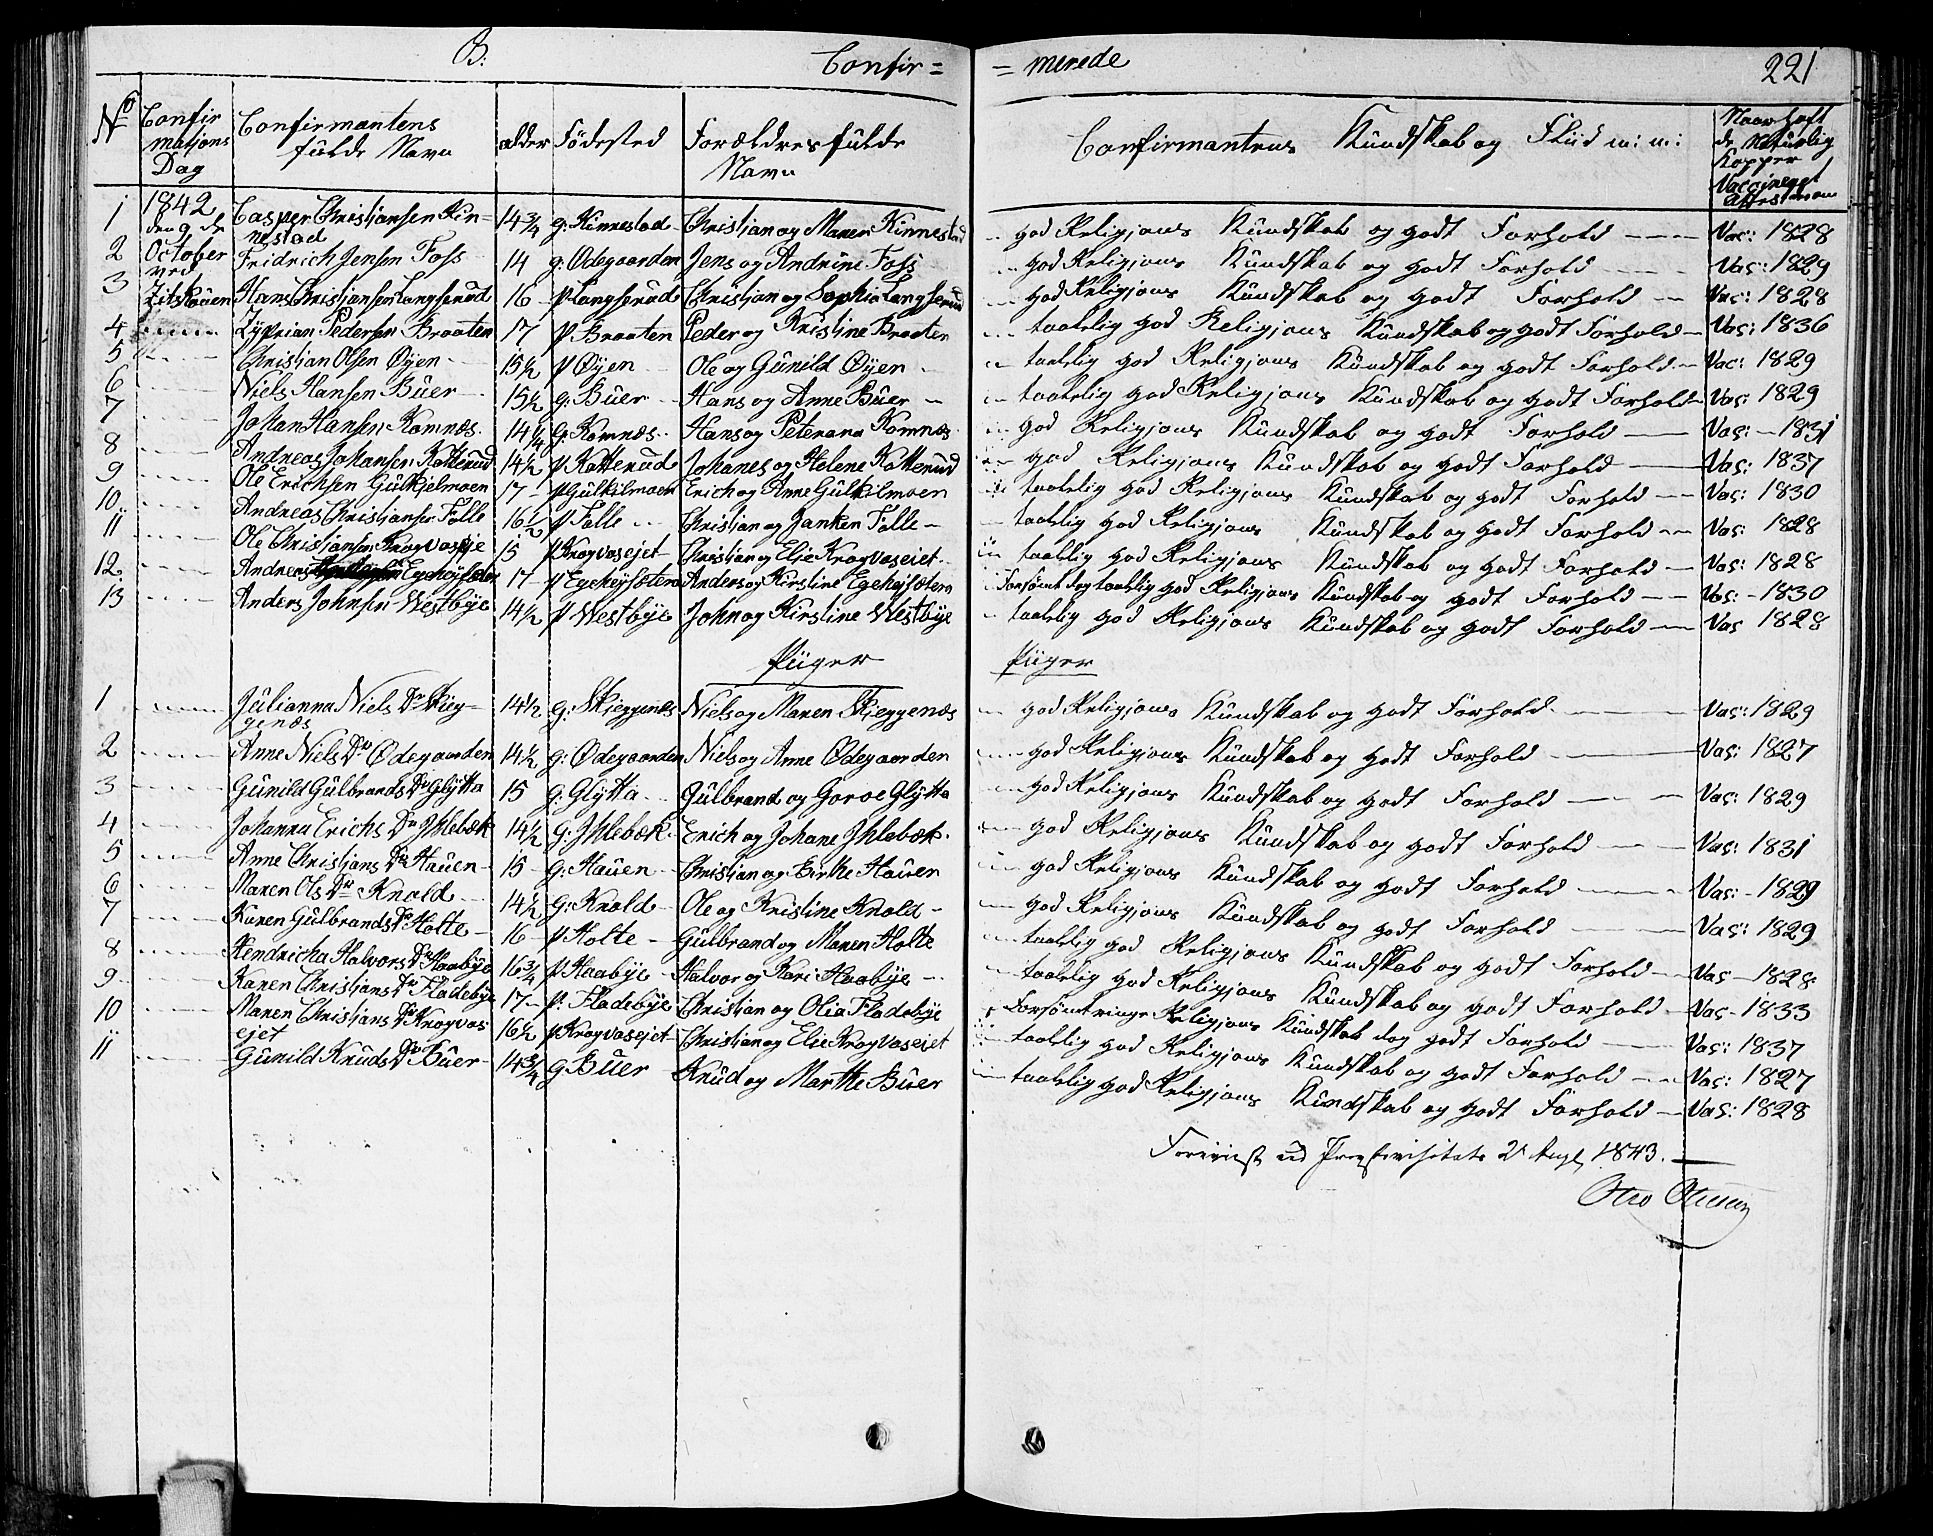 B. Confir = = merede 221
No Confirmations Dag Confirmantens fulde Navn alder Fødested Forældres fulde Navn Confirmantens Kundskab og Fliid m: m: Naar haft de Naturlig Kopper Vaccineret
1 1842 den 9de Casper Christjansen Kinnestad 14 3/4 g: Kinnestad Christjan og Maren Kinnestad god Religjons Kundskab og godt Forhold Vac: 1828
2 October Fridrich Jensen Foss 14 g: Ødegaarden Jens og Andrine Foss god Religjons Kundskab og godt Forhold Vac: 1829
3 ved Hans Christjansen Langserud 16 p Langserud Christjan og Sophia Langserud god Religjons Kundskab og godt Forhold Vac: 1828
4 Zyprian Pedersen Braaten 17 p Braaten Peder og Kristine Braaten taalelig god Religjons Kundskab og godt Forhold Vac: 1836
5 Christjan Olsen Øyen 15 1/2 p Øyen Ole og Gunild Øyen taalelig god Religjons Kundskab og godt Forhold Vac: 1829
6 Niels Hansen Buer 15 1/2 g: Buer Hans og Anne Buer taalelig god Religjons Kundskab og godt Forhold Vac: 1829
7 Johan Hansen Komnæs 14 1/4 G: Komnæs Hans og Peterana Komnæs god Religjons Kundskab og godt Forhold Vac: 1831
8 Andreas Johansen Katterud 14 1/2 p Katterud Johanes og Helene Katterud god Religjons Kundskab og godt Forhold Vac: 1837
9 Ole Erichsen Gulkjelmoen 17 p Gulkilmoen Erich og Anne Gulkilmoen taalelig god Religjons Kundskab og godt Forhold Vac: 1830
10 Andreas Christjansen Falle 16 1/2 p Falle Christjan og Janken Falle taalelig god Religjons Kundskab og godt Forhold Vac: 1828
11 Ole Christjansen Krogvaseje 15 p Krogvasejet Christjan og Elie Krogvaseiet taalelig god Religjons Kundskab og godt Forhold Vac: 1828
12 Andreas Egehøjsæter 17 p Egehøjsæteren Anders og Kirstine Egehøjsætern Forsømt dog taalelig god Religjons Kundskab og godt Forhold Vac: 1830
13 Anders Johnsen Westbye 14 1/2 p Westbye John og Kirstine Westbye taalelig god Religjons Kundskab og godt Forhold Vac 1828
Piiger Piiger
1 Julianna Niels Dr Skieggenæs 14 1/2 g: Skieggenæs Niels og Maren Skieggenæs god Religjons Kundskab og godt Forhold Vac: 1829
2 Anne Niels Dr Ødegaarden 14 1/2 g: Ødegaarden Niels og Anne Ødegaarden god Religjons Kundskab og godt Forhold Vac: 1827
3 Gunild Gulbrands Dr Glytta 15 G: Glytta Gulbrand og Goroe Glytta god Religjons Kundskab og godt Forhold Vac: 1829
4 Johanna Erichs Dr Ihlebæk 14 1/2 G: Ihlebæk Erich og Johane Ihlebæk god Religjons Kundskab og godt Forhold Vac: 1831
5 Anne Christjans Dr Hauen 15 G: Hauen Christjan og Birthe Hauen god Religjons Kundskab og godt Forhold Vac: 1829
6 Maren Ols Dr Knold 14 1/2 G: Knold Ole og Kristine Knold god Religjons Kundskab og godt Forhold Vac: 1829
7 Karen Gulbrands Dr Holte 16 p Holte Gulbrand og Maren Holte taalelig god Religjons Kundskab og godt Forhold Vac 1828
8 Hendricka Halvors Dr Haabye 16 3/4 p Haabye Halvor og Kari Haabye taalelig god Religjons Kundskab og godt Forhold Vac 1833
9 Karen Christjans Dr Fladebye 17 p. Fladebye Christjan og Olia Fladebye Forsømt ringe Religjons Kundskab dog godt Forhold Vac: 1837
10 Maren Christjans Dr Krogvasejet 16 1/2 p Krogvasejet Christjan og Elie Krogvaseiet taalelig god Religjons Kundskab og godt Forhold Vac: 1827
11 Gunild Knuds Dr Buer 14 3/4 G Buer Knud og Marthe Buer taalelig god Religjons Kundskab og godt Forhold Vac: 1828
1843.